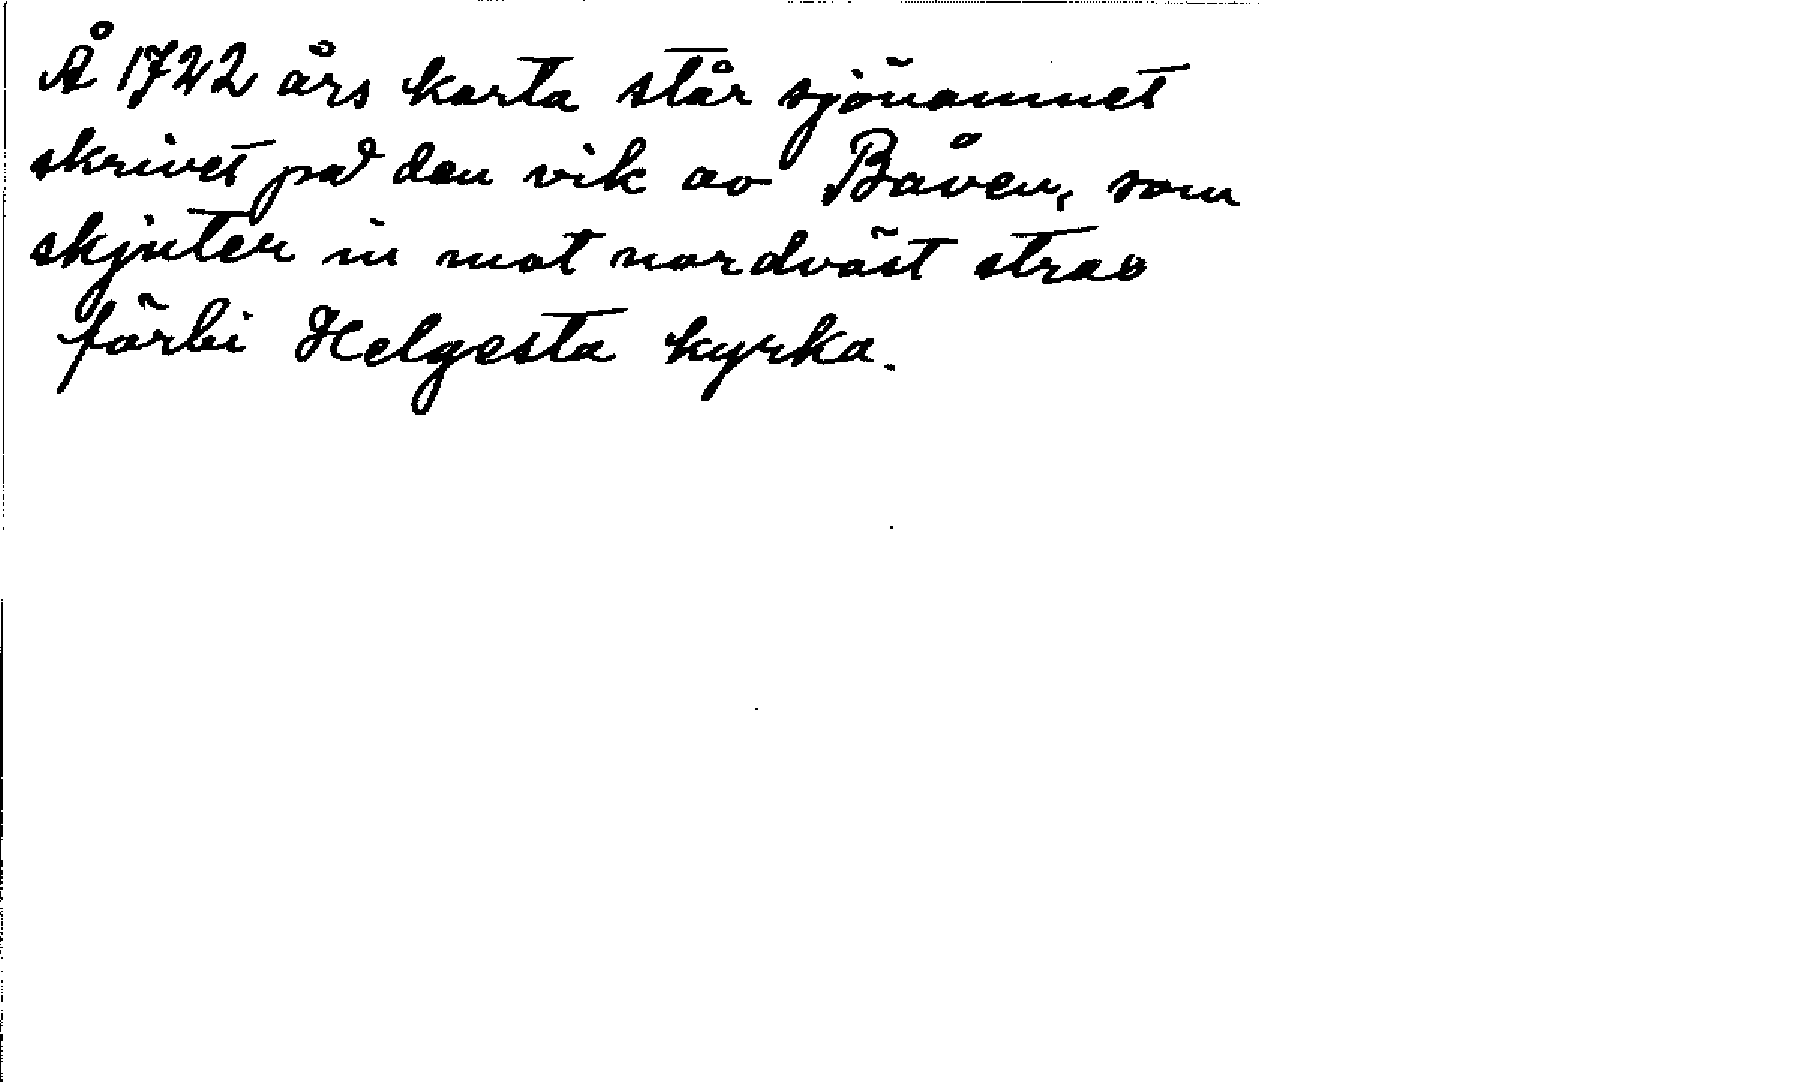 Å 1722 års karta står sjönamnet
skrivet på den vik av Båven, som
skjuter in mot nordväst strax
förbi Helgesta kyrka.